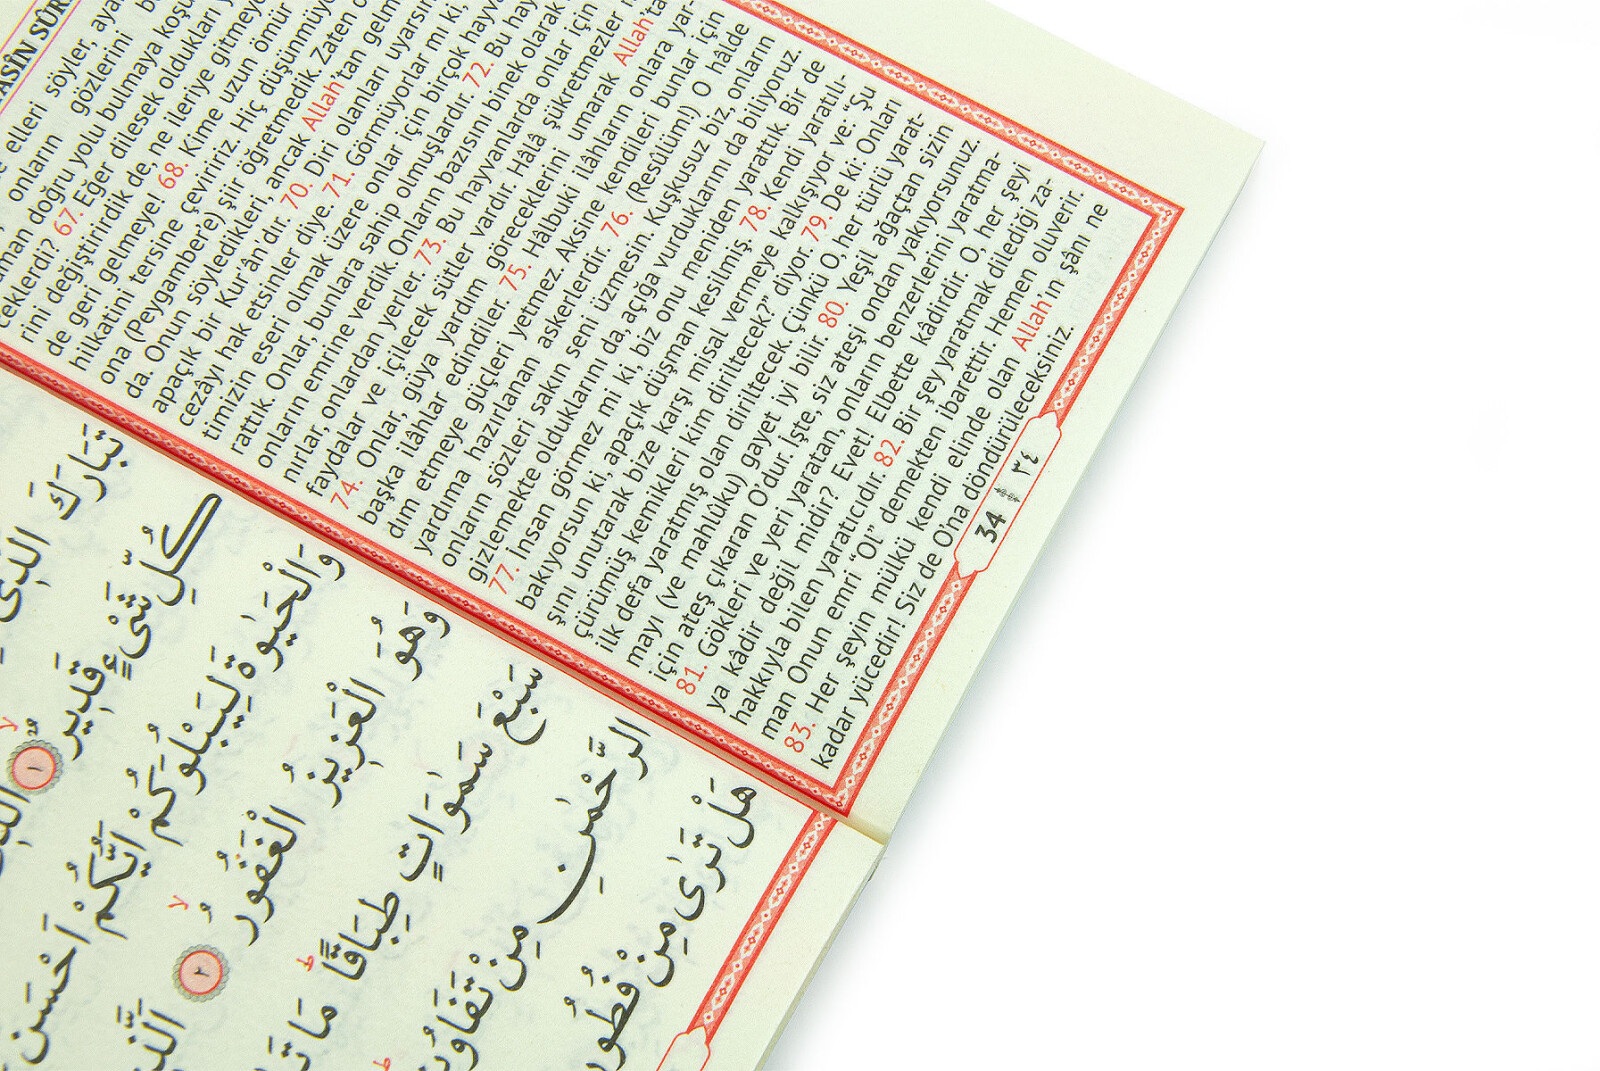 ASÎN SÛR
elleri söyler, aya
onların gözlerini
doğru yolu bulmaya koşu
ceklerdi? 67. Eğer dilesek oldukları
rini değiştirdik de, ne ileriye gitmeye
de geri gelmeye! 68. Kime uzun ömür
hilkatini tersine çeviririz. Hiç düşünmüyo
ona (Peygambere) şiir öğretmedik. Zaten o
da. Onun söyledikleri, ancak Allah'tan gelm
apaçık bir Kur'ân'dır. 70. Diri olanları uyarsın
cezâyı hak etsinler diye. 71. Görmüyorlar mı ki,
timizin eseri olmak üzere onlar için birçok hayv
rattık. Onlar, bunlara sahip olmuşlardır. 72. Bu hay
onların emrine verdik Onların bazısını binek olarak
nırlar, onlardan yerler. 73. Bu hayvanlarda onlar için
faydalar ve içilecek sütler vardır. Hâlâ şükretmezler
74. Onlar, güya yardım göreceklerini umarak Allah'ta
başka ilâhlar edindiler. 75. Hâlbuki ilâhların onlara yar-
dım etmeye güçleri yetmez. Aksine kendileri bunlar için
yardıma hazırlanan askerlerdir. 76. (Resûlüm!) O hâlde
onların sözleri sakın seni üzmesin. Kuşkusuz biz, onların
gizlemekte olduklarını da, açığa vurduklarını da biliyoruz.
77. İnsan görmez mi ki, biz onu meniden yarattık. Bir de
bakıyorsun ki, apaçık düşman kesilmiş. 78. Kendi yaratıl-
şını unutarak bize karşı misal vermeye kalkışıyor ve: "Şu
çürümüş kemikleri kim diriltecek?" diyor. 79. De ki: Onları
ilk defa yaratmış olan diriltecek. Çünkü O, her türlü yarat-
mayı (ve mahlûku) gayet iyi bilir. 80. Yeşil ağaçtan sizin
için ateş çıkaran O'dur. İşte, siz ateşi ondan yakıyorsunuz.
81. Gökleri ve yeri yaratan, onların benzerlerini yaratma-
ya kâdir değil midir? Evet! Elbette kâdirdir. O, her şeyi
hakkıyla bilen yaratıcıdır. 82. Bir şey yaratmak dilediği za-
man Onun emri "Ol" demekten ibarettir. Hemen oluverir.
83. Her şeyin mülkü kendi elinde olan Allah'ın şânı ne
kadar yücedir! Siz de O'na döndürüleceksiniz.
34 ٣٤
تَبَارَكَ الَّذِى
كُلِّ شَىْءٍ قَدِيرٌ ۙ ١
وَالْحَيٰوةَ لِيَبْلُوَكُمْ اَيُّكُمْ اَحْسَنُ
وَهُوَ الْعَزِيزُ الْغَفُورُ ۙ ٢ الَّذ
سَبْعَ سَمٰوَاتٍ طِبَاقًاۜ مَا تَ
الرَّحْمٰنِ مِنْ تَفَاوُتٍ
هَلْ تَرٰى مِنْ فُطُور